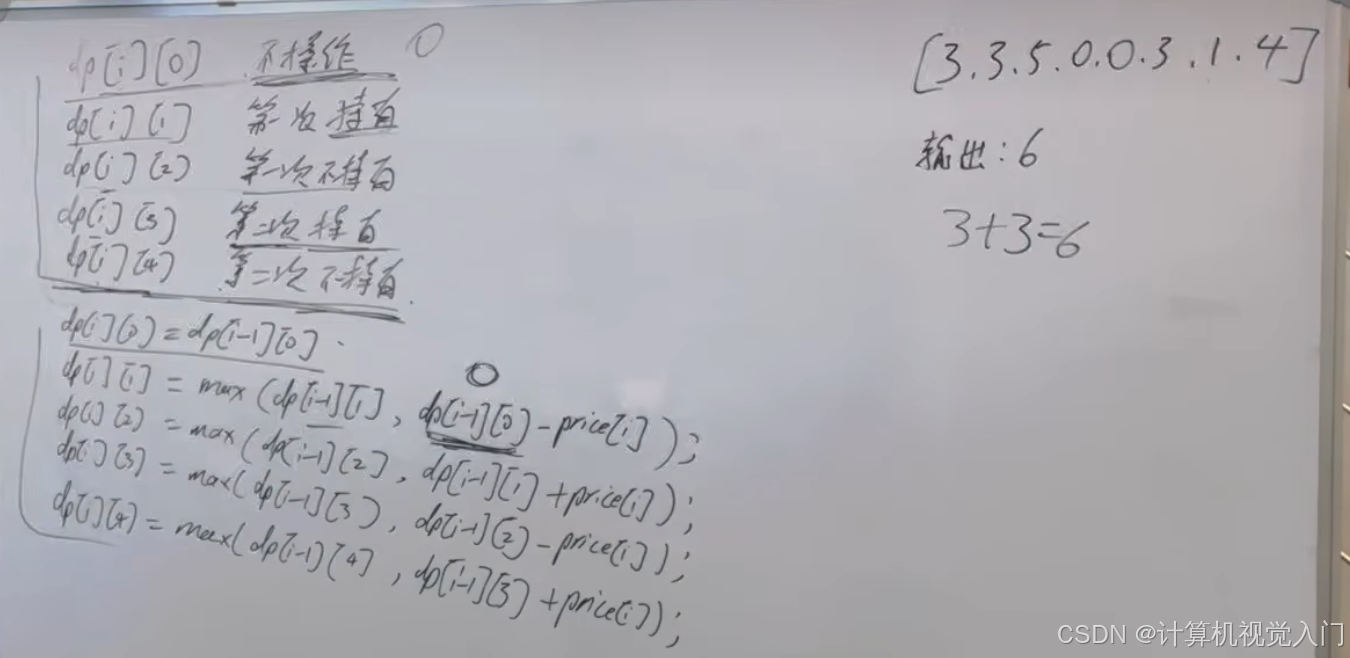 dp[i][0] 不操作 0
dp[i][1] 第一次持有
dp[i][2] 第一次不持有
dp[i][3] 第二次持有
dp[i][4] 第二次不持有.
dp[i][0] = dp[i-1][0].
0
dp[i][1] = max(dp[i-1][1], dp[i-1][0]-price[i]);
dp[i][2] = max(dp[i-1][2], dp[i-1][1]+price[i]);
dp[i][3] = max(dp[i-1][3], dp[i-1][2]-price[i]);
dp[i][4] = max(dp[i-1][4], dp[i-1][3]+price[i]);
[3.3.5.0.0.3.1.4]
输出:6
3+3=6
CSDN @计算机视觉入门